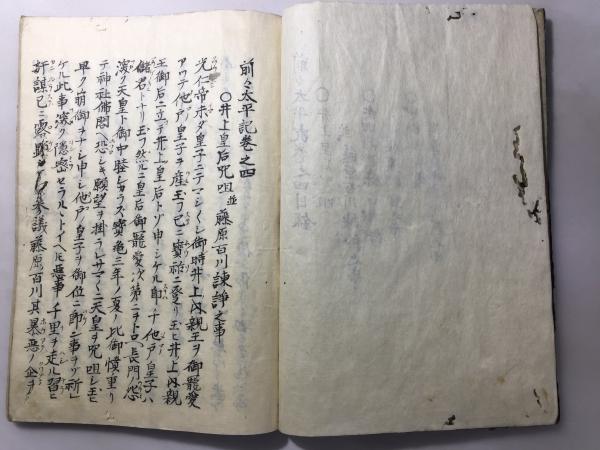 前々太平記巻之四
〇井上皇后咒咀並藤原百川諌諍之事
光仁帝未タ皇子ニテマシ〱シ御時井上内親王ヲ御寵愛
アツテ他戸皇子ヲ産玉フ已ニ寳祚ニ登リ玉ヒ井上内親
王御后ニ立テ井上皇后トゾ申シケル即チ他戸皇子ハ
儲君トナリ玉フ然ルニ皇后御寵愛次第ニヲトロヘ長門ノ怨
深ク天皇ト御中睦シカラス寳亀三年ノ夏ノ比御憤重リ
テ神社佛閣ヘ恐シキ願望ヲ掛ラレサマ〱ニ天皇ヲ咒咀シ玉ヒ
早ク崩御ヲナシ申シ他戸ノ皇子ヲ御位ニ即ン事ヲゾ祈
ケル此事深ク隠密セラルヽトイヘ𪜈悪事千里ヲ走ル習ニ
奸謀已ニ露顕シケレハ参議藤原百川其暴悪ノ企ヲ